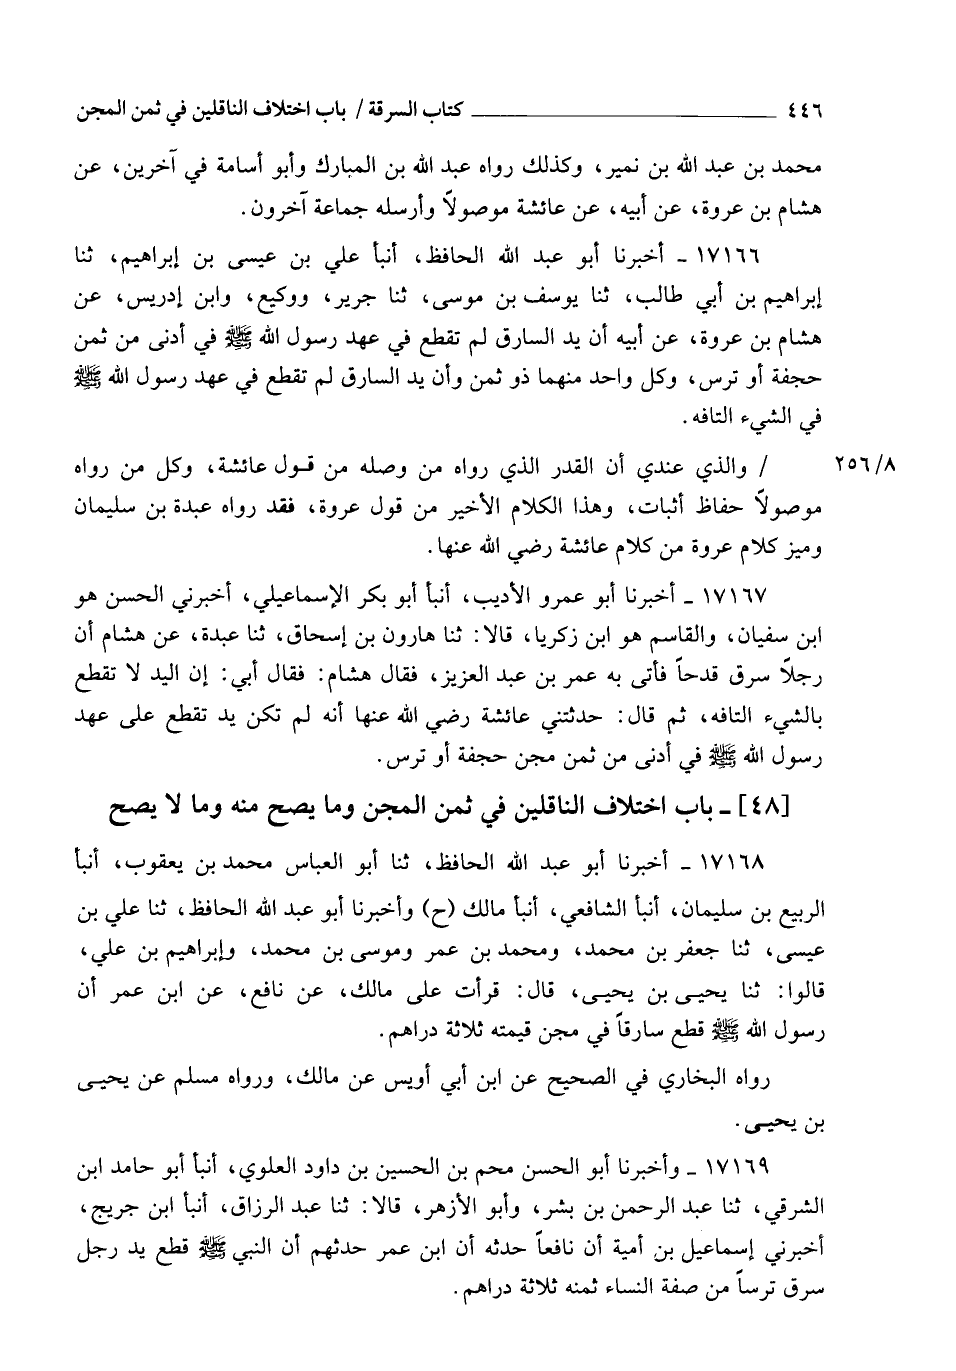 ٤٤٦ كتاب السرقة / باب اختلاف الناقلين في ثمن المجن
محمد بن عبد الله بن نمير، وكذلك رواه عبد الله بن المبارك وأبو أسامة في آخرين، عن
هشام بن عروة، عن أبيه، عن عائشة موصولاً وأرسله جماعة آخرون.
١٧١٦٦ ـ أخبرنا أبو عبد الله الحافظ، أنبأ علي بن عيسى بن إبراهيم، ثنا
إبراهيم بن أبي طالب، ثنا يوسف بن موسى، ثنا جرير، ووكيع، وابن إدريس، عن
هشام بن عروة، عن أبيه أن يد السارق لم تقطع في عهد رسول الله ﷺ في أدنى من ثمن
حجفة أو ترس، وكل واحد منهما ذو ثمن وأن يد السارق لم تقطع في عهد رسول الله ﷺ
في الشيء التافه.
٢٥٦/٨ / والذي عندي أن القدر الذي رواه من وصله من قول عائشة، وكل من رواه
موصولاً حفاظ أثبات، وهذا الكلام الأخير من قول عروة، فقد رواه عبدة بن سليمان
وميز كلام عروة من كلام عائشة رضي الله عنها.
١٧١٦٧ ـ أخبرنا أبو عمرو الأديب، أنبأ أبو بكر الإسماعيلي، أخبرني الحسن هو
ابن سفيان، والقاسم هو ابن زكريا، قالا: ثنا هارون بن إسحاق، ثنا عبدة، عن هشام أن
رجلاً سرق قدحاً فأتى به عمر بن عبد العزيز، فقال هشام: فقال أبي: إن اليد لا تقطع
بالشيء التافه، ثم قال: حدثتني عائشة رضي الله عنها أنه لم تكن يد تقطع على عهد
رسول الله ﷺ في أدنى من ثمن مجن حجفة أو ترس.
[٤٨] ـ باب اختلاف الناقلين في ثمن المجن وما يصح منه وما لا يصح
١٧١٦٨ ـ أخبرنا أبو عبد الله الحافظ، ثنا أبو العباس محمد بن يعقوب، أنبأ
الربيع بن سليمان، أنبأ الشافعي، أنبأ مالك (ح) وأخبرنا أبو عبد الله الحافظ، ثنا علي بن
عيسى، ثنا جعفر بن محمد، ومحمد بن عمر وموسى بن محمد، وإبراهيم بن علي،
قالوا: ثنا يحيى بن يحيى، قال: قرأت على مالك، عن نافع، عن ابن عمر أن
رسول الله ﷺ قطع سارقاً في مجن قيمته ثلاثة دراهم.
رواه البخاري في الصحيح عن ابن أبي أويس عن مالك، ورواه مسلم عن يحيى
بن يحيى.
١٧١٦٩ ـ وأخبرنا أبو الحسن محم بن الحسين بن داود العلوي، أنبأ أبو حامد ابن
الشرقي، ثنا عبد الرحمن بن بشر، وأبو الأزهر، قالا: ثنا عبد الرزاق، أنبأ ابن جريج،
أخبرني إسماعيل بن أمية أن نافعاً حدثه أن ابن عمر حدثهم أن النبي ﷺ قطع يد رجل
سرق ترساً من صفة النساء ثمنه ثلاثة دراهم.